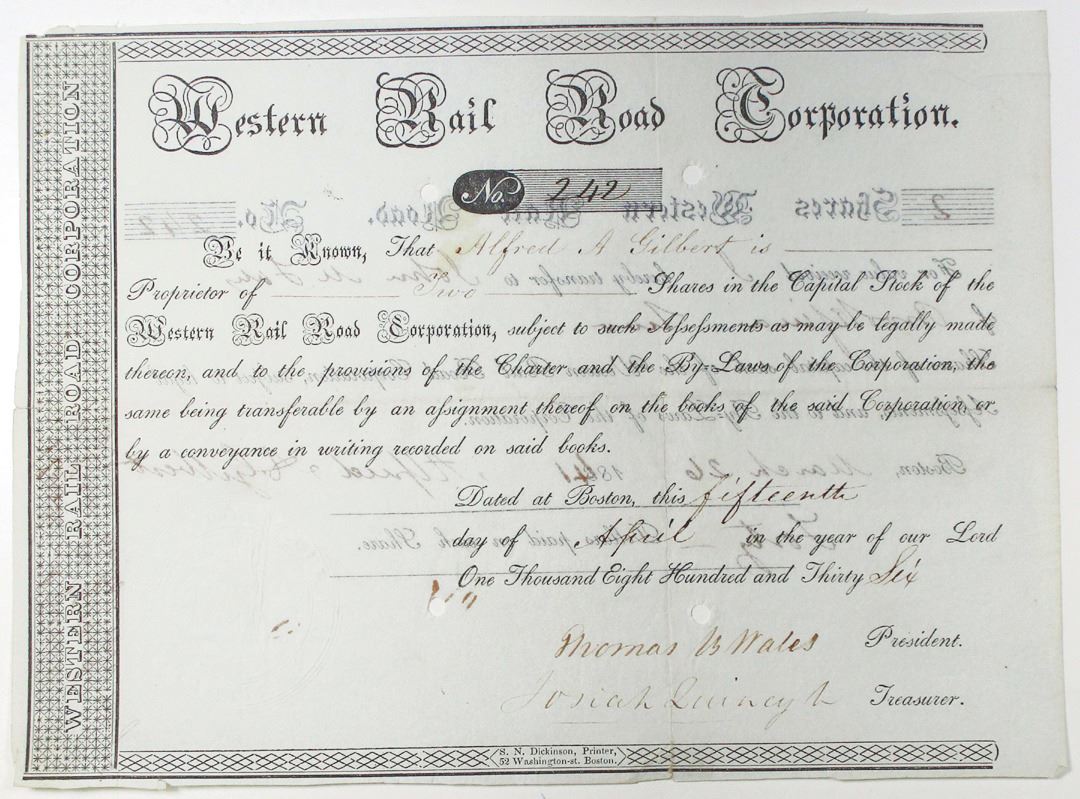 Western Rail Road Corporation.
No. 242
Be it Known, That Alfred A Gilbert is
Proprietor of Two Shares in the Capital Stock of the
Western Rail Road Corporation, subject to such Assessments as may be legally made
thereon, and to the provisions of the Charter and the By-Laws of the Corporation, the
same being transferable by an assignment thereof on the books of the said Corporation, or
by a conveyance in writing recorded on said books.
Dated at Boston, this fifteenth
day of April in the year of our Lord
One Thousand Eight Hundred and Thirty Six
Thomas B Wales President.
Josiah Quincy Jr Treasurer.
S. N. Dickinson, Printer,
52 Washington-st. Boston.
WESTERN RAIL ROAD CORPORATION